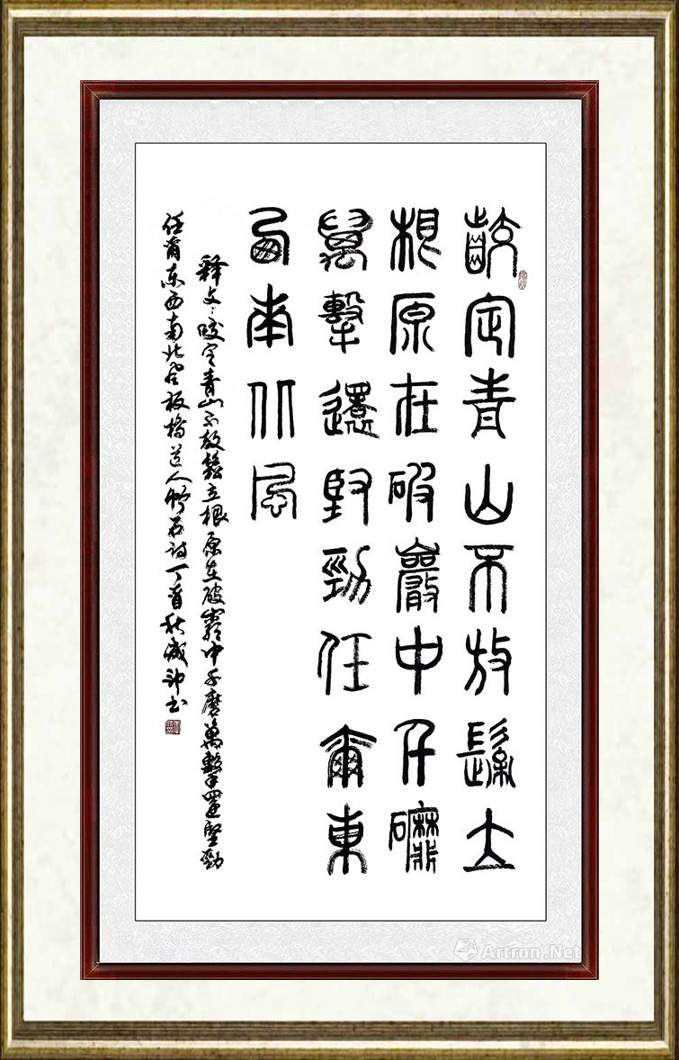 齩定青山不放鬆立
根原在破巖中千䃺
萬擊還堅勁任爾東
西南北風
释文：咬定青山不放鬆立根原在破岩中千磨萬擊還堅勁
任爾东西南北风板橋道人竹石诗丁酉秋书
Artron.Net